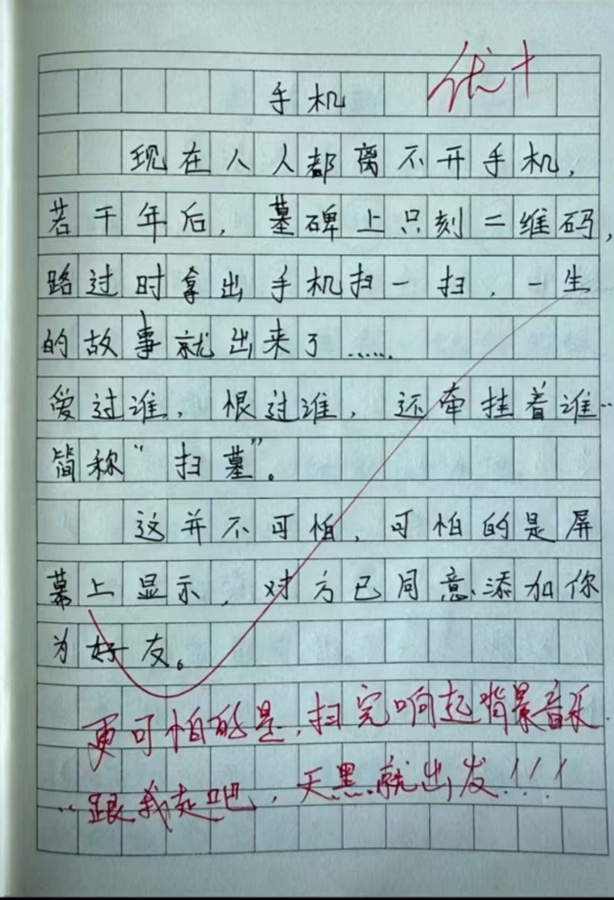 优+
手机
现在人人都离不开手机,
若干年后,墓碑上只刻二维码,
路过时拿出手机扫一扫,一生
的故事就出来了……
爱过谁,恨过谁,还牵挂着谁…
简称“扫墓”。
这并不可怕,可怕的是屏
幕上显示,对方已同意添加你
为好友。
更可怕的是,扫完响起背景音乐.
“跟我走吧,天黑就出发!!!